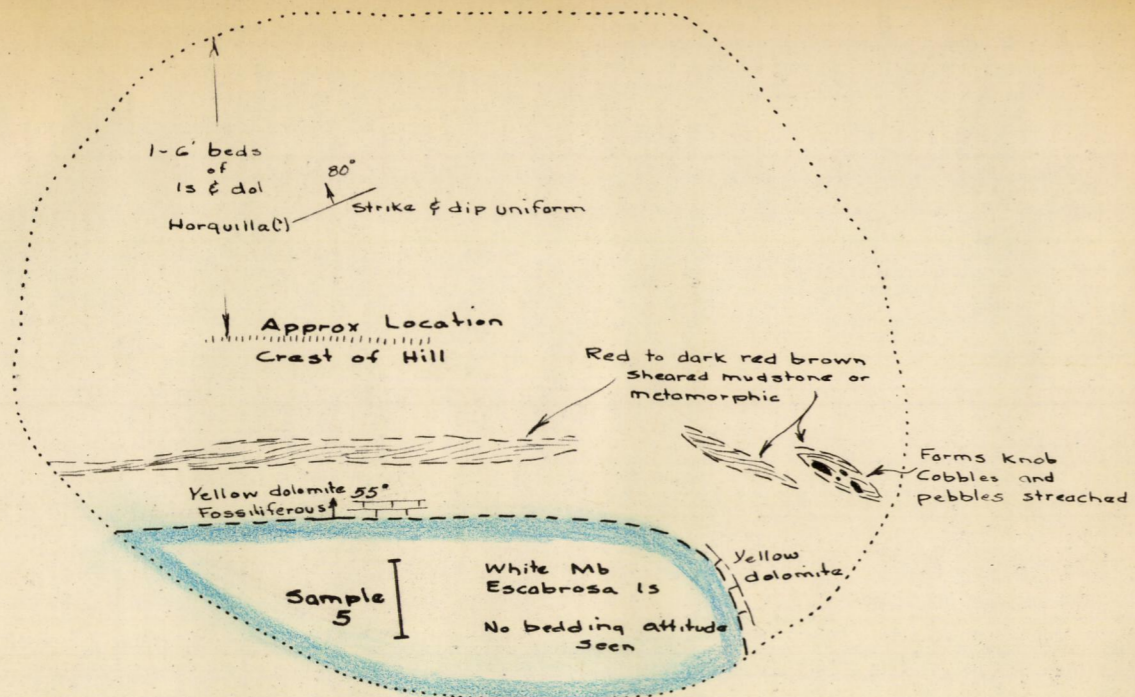 1-6' beds
of
ls & dol
Horquilla(?)
80°
Strike & dip uniform
Approx Location
Crest of Hill
Red to dark red brown
sheared mudstone or
metamorphic
Forms knob
Cobbles and
pebbles streached
Yellow dolomite 55°
Fossiliferous
Yellow
dolomite
Sample
5
White Mb
Escabrosa ls
No bedding attitude
seen